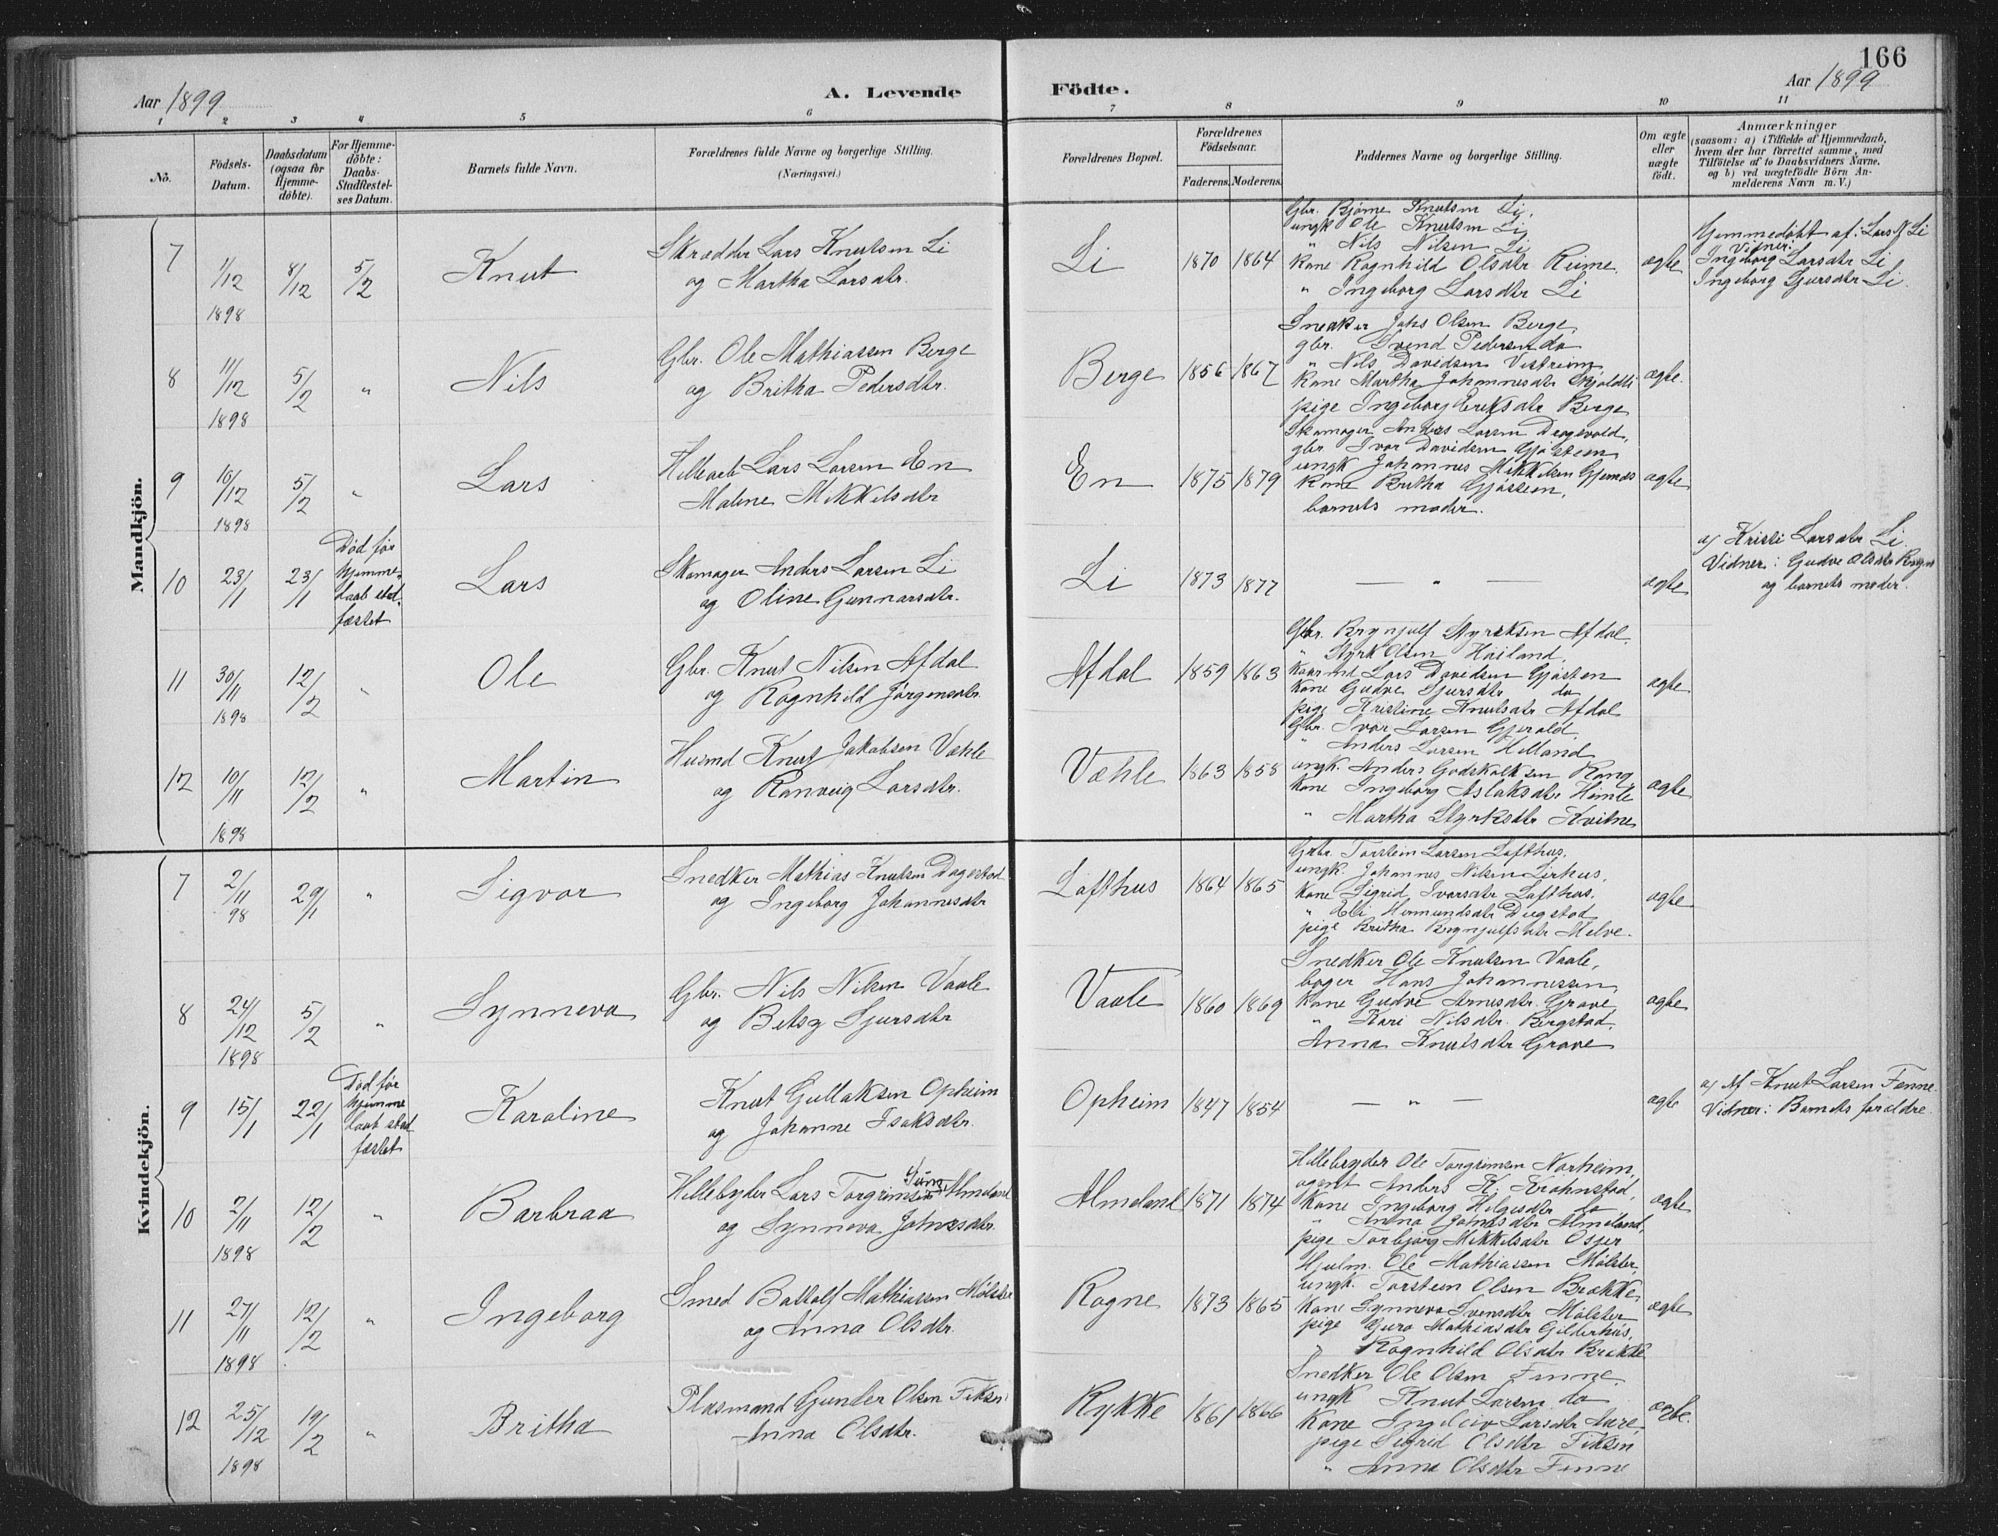 166
Aar 1899
A. Levende Födte.
Aar 1899
1 2 3 4 5 6 7 8 9 10 11
No.
Födsels-Datum.
Daabsdatum (ogsaa for Hjemme-döbte).
For Hjemme-döbte: Daabs-Stadfæstel-ses Datum.
Barnets fulde Navn.
Forældrenes fulde Navne og borgerlige Stilling.
(Næringsvei.)
Forældrenes Bopæl.
Forældrenes Födselsaar.
Faderens. Moderens.
Faddernes Navne og borgerlige Stilling.
Om ægte eller uægte födt.
Anmærkninger
(saasom: a) i Tilfælde af Hjemmedaab,
hvem der har forrettet samme, med
Tilföielse af to Daabsvidners Navne,
og b) ved uægtefödte Börn An-
melderens Navn m. V.)
Mandkjön.
7 1/12 1898 8/12 5/2 Knut
Skrædder Lars Knutsen Li
og Martha Larsdtr.
Li 1870 1864
Gbr. Bjørne Knutsen Li,
ungk Ole Knutsen Li
" Nils Nilsen Li
Kone Ragnhild Olsdtr Reime
" Ingeborg Larsdtr Li
ægte
Hjemmedøbt af: Lars Li
Vidner:
Ingeborg Larsdtr Li
Ingeborg Sjursdtr Li.
8 11/12 1898 5/2 " Nils
Gbr. Ole Mathiassen Berge
og Britha Pedersdtr.
Berge 1856 1867
Snedker Johs Olsen Berge,
gbr. Svend Pedersen do
" Nils Davidsen Vestreim
Kone Martha Johannesdtr Skjoldli
pige Ingeborg Eriksdtr Berge
ægte.
9 10/12 1898 5/2 " Lars
Lars Larsen En
Malene Mikkelsdtr
En 1875 1879
Skomager Anders Larsen Dagevold,
gbr Ivar Davidsen Gjøstein
ungk Johannes Mikkelsen Gjernes
Kone Britha Gjøstein,
barnets moder.
ægte
10 23/1 23/1
Død før hjemme-daab stad-fæstet
Lars
Skomager Anders Larsen Li
og Oline Gunnarsdtr.
Li 1873 1877
— " —
ægte
a) Kristi Larsdtr Li.
Vidner: Gudve Olsdtr
og barnets moder.
11 30/11 1898 12/2 " Ole
Gbr. Knut Nilsen Afdal
og Ragnhild Jørgensdtr
Afdal 1859 1863
Gbr. Brynjulf Styrksen Afdal
" Styrk Olsen Høiland,
Kaarmd Lars Davidsen Gjøsten
Kone Gudve Sjursdtr do
pige Kristine Knutsdtr Afdal
ægte
12 10/11 1898 12/2 " Martin
Husmd Knut Jakobsen Væhle
og Ranveig Larsdtr.
Væhle 1863 1858
Gbr. Ivar Larsen Gjerald,
" Anders Larsen Helland
ungk. Anders Godskalksen Rong
Kone Ingeborg Aslaksdtr Himle
" Martha Styrksdtr Kvitne
ægte
Kvindekjön.
7 2/11 98 29/1 " Sigvor
Snedker Mathias Knutsen Dagestad
og Ingeborg Johannesdtr
Lofthus 1864 1865
Grbr. Torstein Larsen Lofthus,
ungk. Johannes Nilsen Lirhus,
Kone Sigrid Ivarsdtr Lofthus,
" Eli Hermundsdtr Dugstad
pige Britha Brynjulfsdtr Melve.
ægte
8 24/12 1898 5/2 " Synneva
Gbr. Nils Nilsen Vaale
og Betsy Sjursdtr
Vaale 1860 1869
Snedker Ole Knutsen Vaale,
bager Hans Johannessen
Kone Gudve Arnesdtr. Grave
" Kari Nilsdtr. Bergstad
Anna Knutsdtr Grave
ægte
9 15/1 22/1
Død før hjemme daab stad fæstet
Karoline
Knut Gullaksen Opheim
og Johanne Isaksdtr.
Opheim 1847 1854
— " —
ægte
a) Af Knut Larsen Fenne.
Vidner: Barnets forældre.
10 2/11 1898 12/2 " Barbraa
Hellebryder Lars Torgrimsen Almeland
og Synneva Johnsdtr.
Almeland 1871 1874
Hellebryder Ole Torgrimsen Norheim,
agent Anders K. Krohnstad,
Kone Ingeborg Helgesdtr do
" Anna Johnsdtr Almeland,
pige Torbjørg Mikkelsdtr Osjer
ægte
11 27/11 1898 12/2 " Ingeborg
Smed Ballolf Mathiassen Mølster
og Anna Olsdtr.
Rogne 1873 1865
Hjulm. Ole Mathiassen Mølster,
ungk. Torstein Olsen Brække,
Kone Synneva Svensdtr Mølster
pige Gjuro Mathiasdtr Gilderhus,
" Ragnhild Olsdtr Brekke
ægte
12 25/12 1898 19/2 " Britha
Plasmand Gunder Olsen Fiksen
Anna Olsdtr.
Rykke 1861 1866
Snedker Ole Olsen Fenne
ungk Knut Larsen do
Kone Ingeleiv Larsdtr Aure,
pige Sigrid Olsdtr Fiksen
" Anna Olsdtr Fenne
ægte.